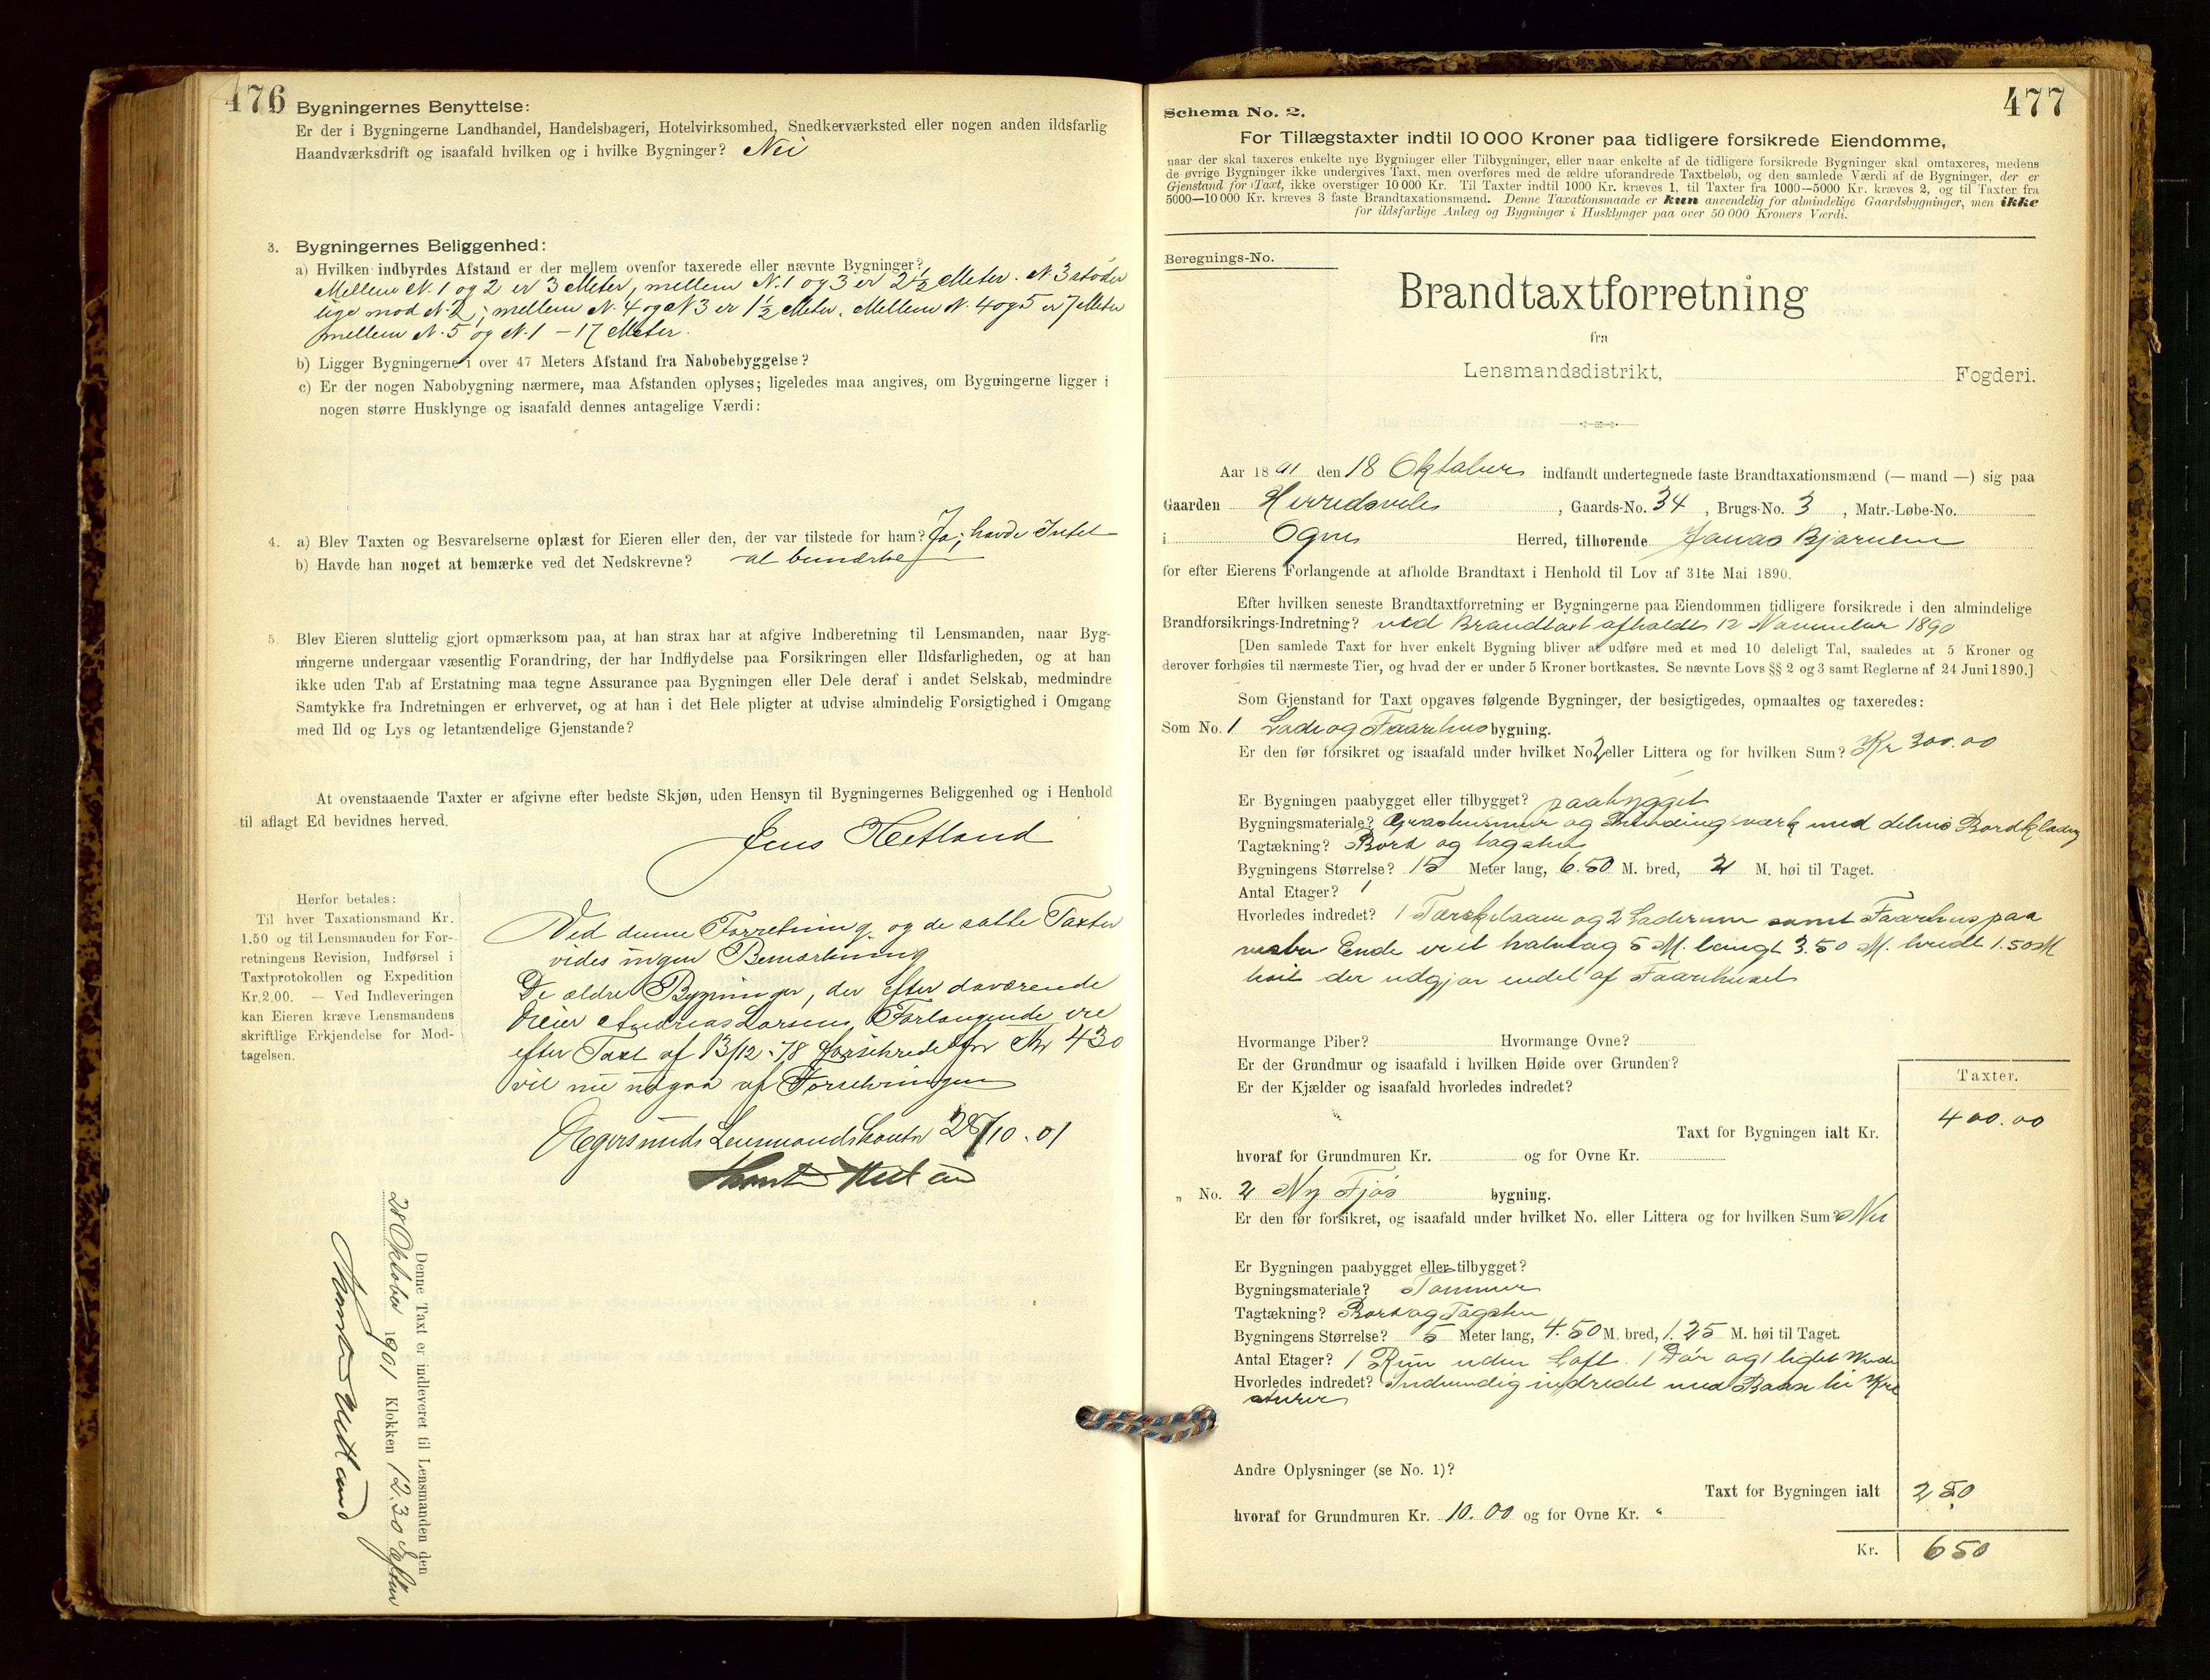 476
Bygningernes Benyttelse:
Er der i Bygningerne Landhandel, Handelsbageri, Hotelvirksomhed, Snedkerværksted eller nogen anden ildsfarlig
Haandværksdrift og isaafald hvilken og i hvilke Bygninger? Nei
3. Bygningernes Beliggenhed:
a) Hvilken indbyrdes Afstand er der mellem ovenfor taxerede eller nævnte Bygninger?
Mellem N. 1 og 2 er 3 Meter, mellem N. 1 og 3 er 2½ Meter. N 3 støder
lige mod N. 2; mellem N. 4 og N 3 er 1½ Meter. Mellem N. 4 og 5 er 7 Meter
mellem N. 5 og N. 1 – 17 Meter.
b) Ligger Bygningerne i over 47 Meters Afstand fra Nabobebyggelse?
c) Er der nogen Nabobygning nærmere, maa Afstanden oplyses; ligeledes maa angives, om Bygningerne ligger i
nogen større Husklynge og isaafald dennes antagelige Værdi:
4. a) Blev Taxten og Besvarelserne oplæst for Eieren eller den, der var tilstede for ham? Ja; havde Intet
b) Havde han noget at bemærke ved det Nedskrevne? at bemærke
5. Blev Eieren sluttelig gjort opmærksom paa, at han strax har at afgive Indberetning til Lensmanden, naar Byg-
ningerne undergaar væsentlig Forandring, der har Indflydelse paa Forsikringen eller Ildsfarligheden, og at han
ikke uden Tab af Erstatning maa tegne Assurance paa Bygningen eller Dele deraf i andet Selskab, medmindre
Samtykke fra Indretningen er erhvervet, og at han i det Hele pligter at udvise almindelig Forsigtighed i Omgang
med Ild og Lys og letantændelige Gjenstande?
At ovenstaaende Taxter er afgivne efter bedste Skjøn, uden Hensyn til Bygningernes Beliggenhed og i Henhold
til aflagt Ed bevidnes herved.
Jens Hetland
Herfor betales:
Til hver Taxationsmand Kr.
1.50 og til Lensmanden for For-
retningens Revision, Indførsel i
Taxtprotokollen og Expedition
Kr. 2.00. — Ved Indleveringen
kan Eieren kræve Lensmandens
skriftlige Erkjendelse for Mod-
tagelsen.
Ved denne Forretning og de satte Taxter
vides ingen Bemærkning
De ældre Bygninger, der efter daværende
Eier Andreas Larsens Forlangende ere
efter Taxt af 13/12 78 forsikrede for Kr 430
vil nu udgaa af Forsikringen
Egersunds Lensmandskontor 28/10. 01
Denne Taxt er indleveret til Lensmanden den
28 Oktober 1901 Klokken 12.30 Efter
477
Schema No. 2.
For Tillægstaxter indtil 10 000 Kroner paa tidligere forsikrede Eiendomme,
naar der skal taxeres enkelte nye Bygninger eller Tilbygninger, eller naar enkelte af de tidligere forsikrede Bygninger skal omtaxeres, medens
de øvrige Bygninger ikke undergives Taxt, men overføres med de ældre uforandrede Taxtbeløb, og den samlede Værdi af de Bygninger, der er
Gjenstand for Taxt, ikke overstiger 10 000 Kr. Til Taxter indtil 1000 Kr. kræves 1, til Taxter fra 1000—5000 Kr. kræves 2, og til Taxter fra
5000—10 000 Kr. kræves 3 faste Brandtaxationsmænd. Denne Taxationsmaade er kun anvendelig for almindelige Gaardsbygninger, men ikke
for ildsfarlige Anlæg og Bygninger i Husklynger paa over 50 000 Kroners Værdi.
Beregnings-No.
Brandtaxtforretning
fra
Lensmandsdistrikt, Fogderi.
Aar 1891 den 18 Oktober indfandt undertegnede faste Brandtaxationsmænd (— mand —) sig paa
Gaarden Herredsvele, Gaards-No. 34, Brugs-No. 3, Matr.-Løbe-No.
i Ogne Herred, tilhørende Jonas Bjarnesen
for efter Eierens Forlangende at afholde Brandtaxt i Henhold til Lov af 31te Mai 1890.
Efter hvilken seneste Brandtaxtforretning er Bygningerne paa Eiendommen tidligere forsikrede i den almindelige
Brandforsikrings-Indretning? ved Brandtaxt afholdt 12 November 1890
[Den samlede Taxt for hver enkelt Bygning bliver at udføre med et med 10 deleligt Tal, saaledes at 5 Kroner og
derover forhøies til nærmeste Tier, og hvad der er under 5 Kroner bortkastes. Se nævnte Lovs §§ 2 og 3 samt Reglerne af 24 Juni 1890.]
Som Gjenstand for Taxt opgaves følgende Bygninger, der besigtigedes, opmaaltes og taxeredes:
Som No. 1 Lade og Faarehus bygning.
Er den før forsikret og isaafald under hvilket No. 2 eller Littera og for hvilken Sum? Kr 300.00
Er Bygningen paabygget eller tilbygget? paabygget
Bygningsmateriale? Graastensmur og Bindingsværk med delvis Bordklædn
Tagtækning? Bord og tagsten
Bygningens Størrelse? 15 Meter lang, 6.50 M. bred, 2 M. høi til Taget.
Antal Etager? 1
Hvorledes indredet? 1 Tærskelaave og 2 Laderum samt Faarehus paa
vestre Ende er et halvtag 5 M. langt 3.50 M. bredt 1.50 M
høit der udgjør endel af Faarehuset
Hvormange Piber? Hvormange Ovne?
Er der Grundmur og isaafald i hvilken Høide over Grunden?
Er der Kjælder og isaafald hvorledes indredet?
Taxter.
Taxt for Bygningen ialt Kr. 400.00
hvoraf for Grundmuren Kr. og for Ovne Kr.
„ No. 2 Ny Fjøs bygning.
Er den før forsikret, og isaafald under hvilket No. eller Littera og for hvilken Sum? Nei
Er Bygningen paabygget eller tilbygget?
Bygningsmateriale? Tømmer
Tagtækning? Bord og Tagsten
Bygningens Størrelse? 5 Meter lang, 4.50 M. bred, 1.25 M. høi til Taget.
Antal Etager? 1 Rum uden Loft. 1 Dør og 1 liget Vindu
Hvorledes indredet? Indvendig indredet med Baase til Kre
aturer
Andre Oplysninger (se No. 1)?
Taxt for Bygningen ialt 250
hvoraf for Grundmuren Kr. 10.00 og for Ovne Kr. "
Kr. 650